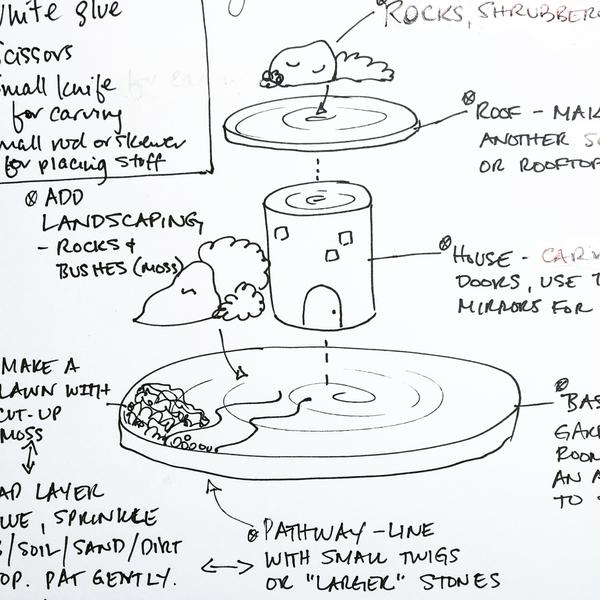 White glue
Scissors
Small knife
for carving
Small rod or skewer
for placing stuff
ROCKS, SHRUBBER
ROOF - MAK
ANOTHER
OR ROOFTOP
ADD
LANDSCAPING
- ROCKS &
BUSHES (MOSS)
HOUSE - CARV
DOORS, USE T
MIRRORS FOR
MAKE A
LAWN WITH
CUT-UP
MOSS
BAS
GAR
ROOM
AN A
TO
LAYER
SPRINKLE
/SOIL/SAND/DIRT
OP. PAT GENTLY.
PATHWAY - LINE
WITH SMALL TWIGS
OR "LARGER" STONES